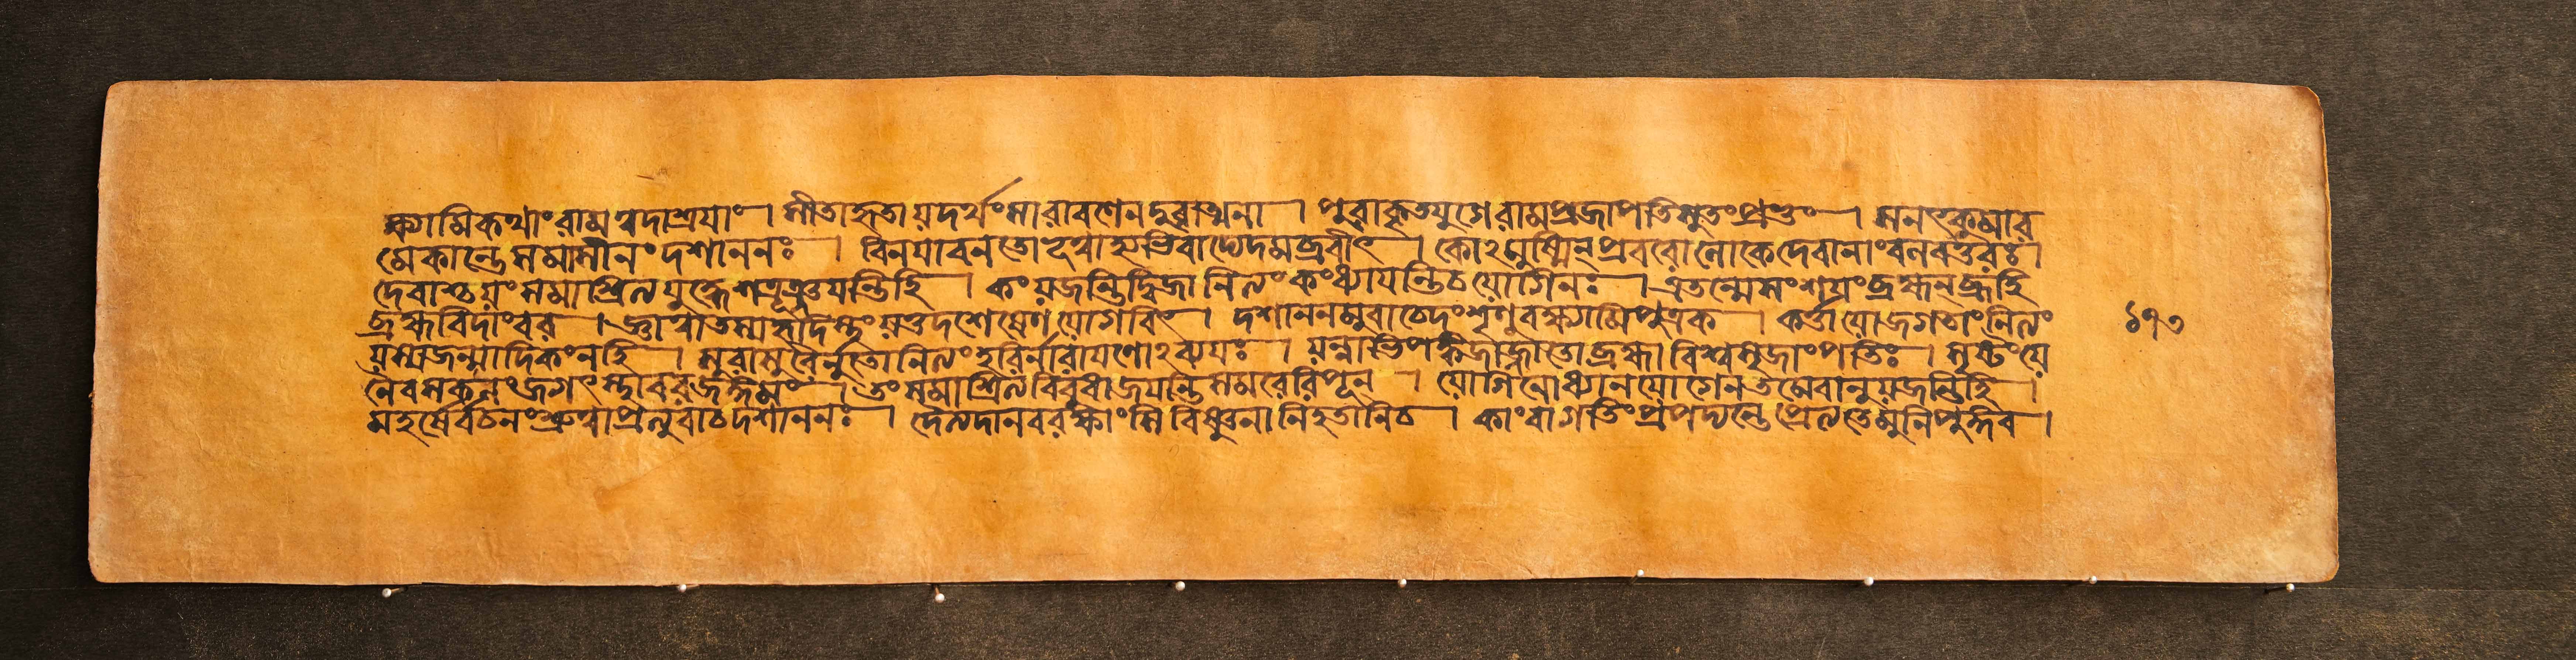 ক্ষ্যামিকথাংরামত্বদাশ্রয়াং । সীতাহৃতায়দর্থংসারাবণেনদুরাত্মনা । পুরাকৃতযুগেরামপ্রজাপতিসুতংপ্রভুং । সনৎকুমার
মেকান্তেসমাসীনংদশাননঃ । বিনয়াবনতোভূত্বাহ্যভিবাদ্যেদমব্রবীৎ । কোঽমুষ্মিন্প্রবরোলোকেদেবানাংবলবত্তরঃ।
দেবাশ্চয়ংসমাশ্রিত্যযুদ্ধেশত্রূঞ্জয়ন্তিহি । কংয়জন্তিদ্বিজানিত্যংকংধ্যায়ন্তিচযোগিনঃ । এতন্মেসংশয়ংব্রহ্মন্ব্রূহি
ব্রহ্মবিদাংবর । জ্ঞাত্বাতস্যহৃদিস্থংয়ত্তদশেষেণযোগবিৎ । দশাননমুবাচেদংশৃণুবক্ষ্যামিপুত্রক । কর্ত্তাযোজগতাংনিত্যং
য়স্যজন্মাদিকংনহি । সুরাসুরৈর্নুতোনিত্যংহরির্নারায়ণোঽব্যয়ঃ । য়ন্নাভিপঙ্কজাজ্জাতোব্রহ্মাবিশ্বসৃজাংপতিঃ। সৃষ্টংয়ে
নৈবসকলংজগৎস্থাবরজঙ্গমং । তংসমাশ্রিত্যবিবুধাজয়ন্তিসমরেরিপূন্ । যোগিনোধ্যানযোগেনতমেবানুয়জন্তিহি ।
মহর্ষের্বচনংশ্রুত্বাপ্রত্যুবাচদশাননঃ । দৈত্যদানবরক্ষাংসিবিষ্ণুনানিহতানিচ । কাংবাগতিংপ্রপদ্যন্তেপ্রেত্যতেমুনিপুঙ্গব ।